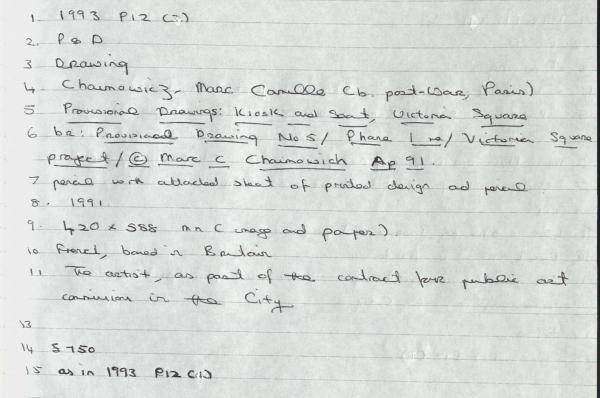 1. 1993 P12 (-)
2. P & D
3 Drawing
4 Chaimowicz, Marc Camille (b. post-War, Paris)
5 Provisional Drawings: Kiosk and Seat, Victoria Square
6 br: Provisional Drawing No 5/ Phase 1 re/ Victoria Square
project/ © Marc C Chaimowich Ap 91.
7 pencil with attached sheet of printed design and pencil
8. 1991
9. 420 x 588 mm (image and paper)
10 French, based in Britain
11 The artist, as part of the contract for public art
commission in the City
13
14 5750
15 as in 1993 P12 (i)